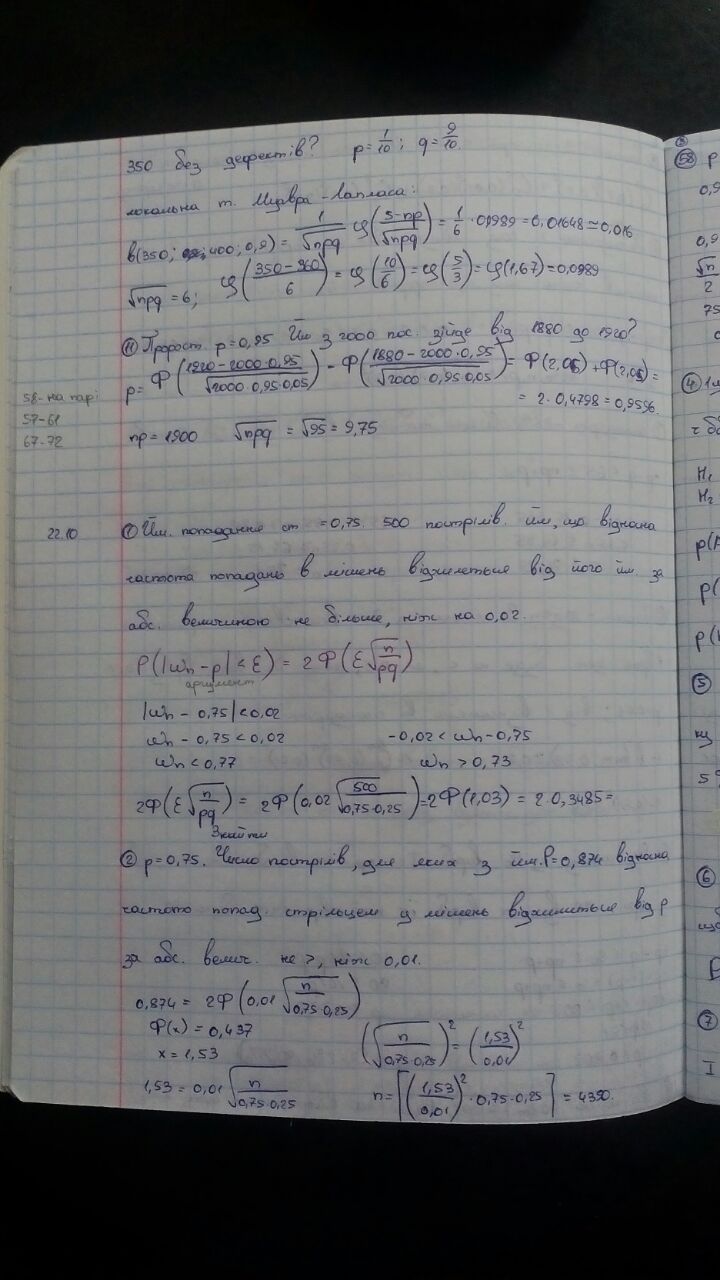 350 без дефектів? p = 1/10 ; q = 9/10.
локальна т. Муавра - Лапласа:
b(350; 400; 0,9) = 1/√npq φ((s-np)/√npq) = 1/6 · 0,0989 = 0,01648 ≃ 0,016
√npq = 6; φ((350-360)/6) = φ(10/6) = φ(5/3) = φ(1,67) = 0,0989
⑪ Пророст. p = 0,95 Йм з 2000 пос. зійде від 1880 до 1920?
p = Φ((1920-2000·0,95)/√2000·0,95·0,05) - Φ((1880-2000·0,95)/√2000·0,95·0,05) = Φ(2,05) + Φ(2,05) =
= 2·0,4798 = 0,9596.
58-на парі
57-61
67-72
np = 1900 √npq = √95 = 9,75
22.10
① Йм. попадання ст = 0,75. 500 пострілів. Йм, що відносна
частота попадань в мішень відхилеться від його йм. за
абс. величиною не більше, ніж на 0,02.
P(|ωn - p| < ε) = 2Φ(ε√(n/pq))
аргумент
|ωn - 0,75| < 0,02
ωn - 0,75 < 0,02 -0,02 < ωn - 0,75
ωn < 0,77 ωn > 0,73
2Φ(ε√(n/pq)) = 2Φ(0,02√(500/0,75·0,25)) = 2Φ(1,03) = 2·0,3485 =
Знайти
② p = 0,75. Число пострілів, для яких з йм. P = 0,874 відносна
частота попад. стрільцем у мішень відхилиться від p
за абс. велич. не >, ніж 0,01.
0,874 = 2Φ(0,01√(n/0,75·0,25))
Φ(x) = 0,437 (√(n/0,75·0,25))² = (1,53/0,01)²
x = 1,53
1,53 = 0,01√(n/0,75·0,25) n = ⌈(1,53/0,01)²·0,75·0,25⌉ = 4390.
㊽ p
0,9
0,9
√n
2
75
④
H₁
H₂
p(A
p(
p(
⑤
⑥
⑦